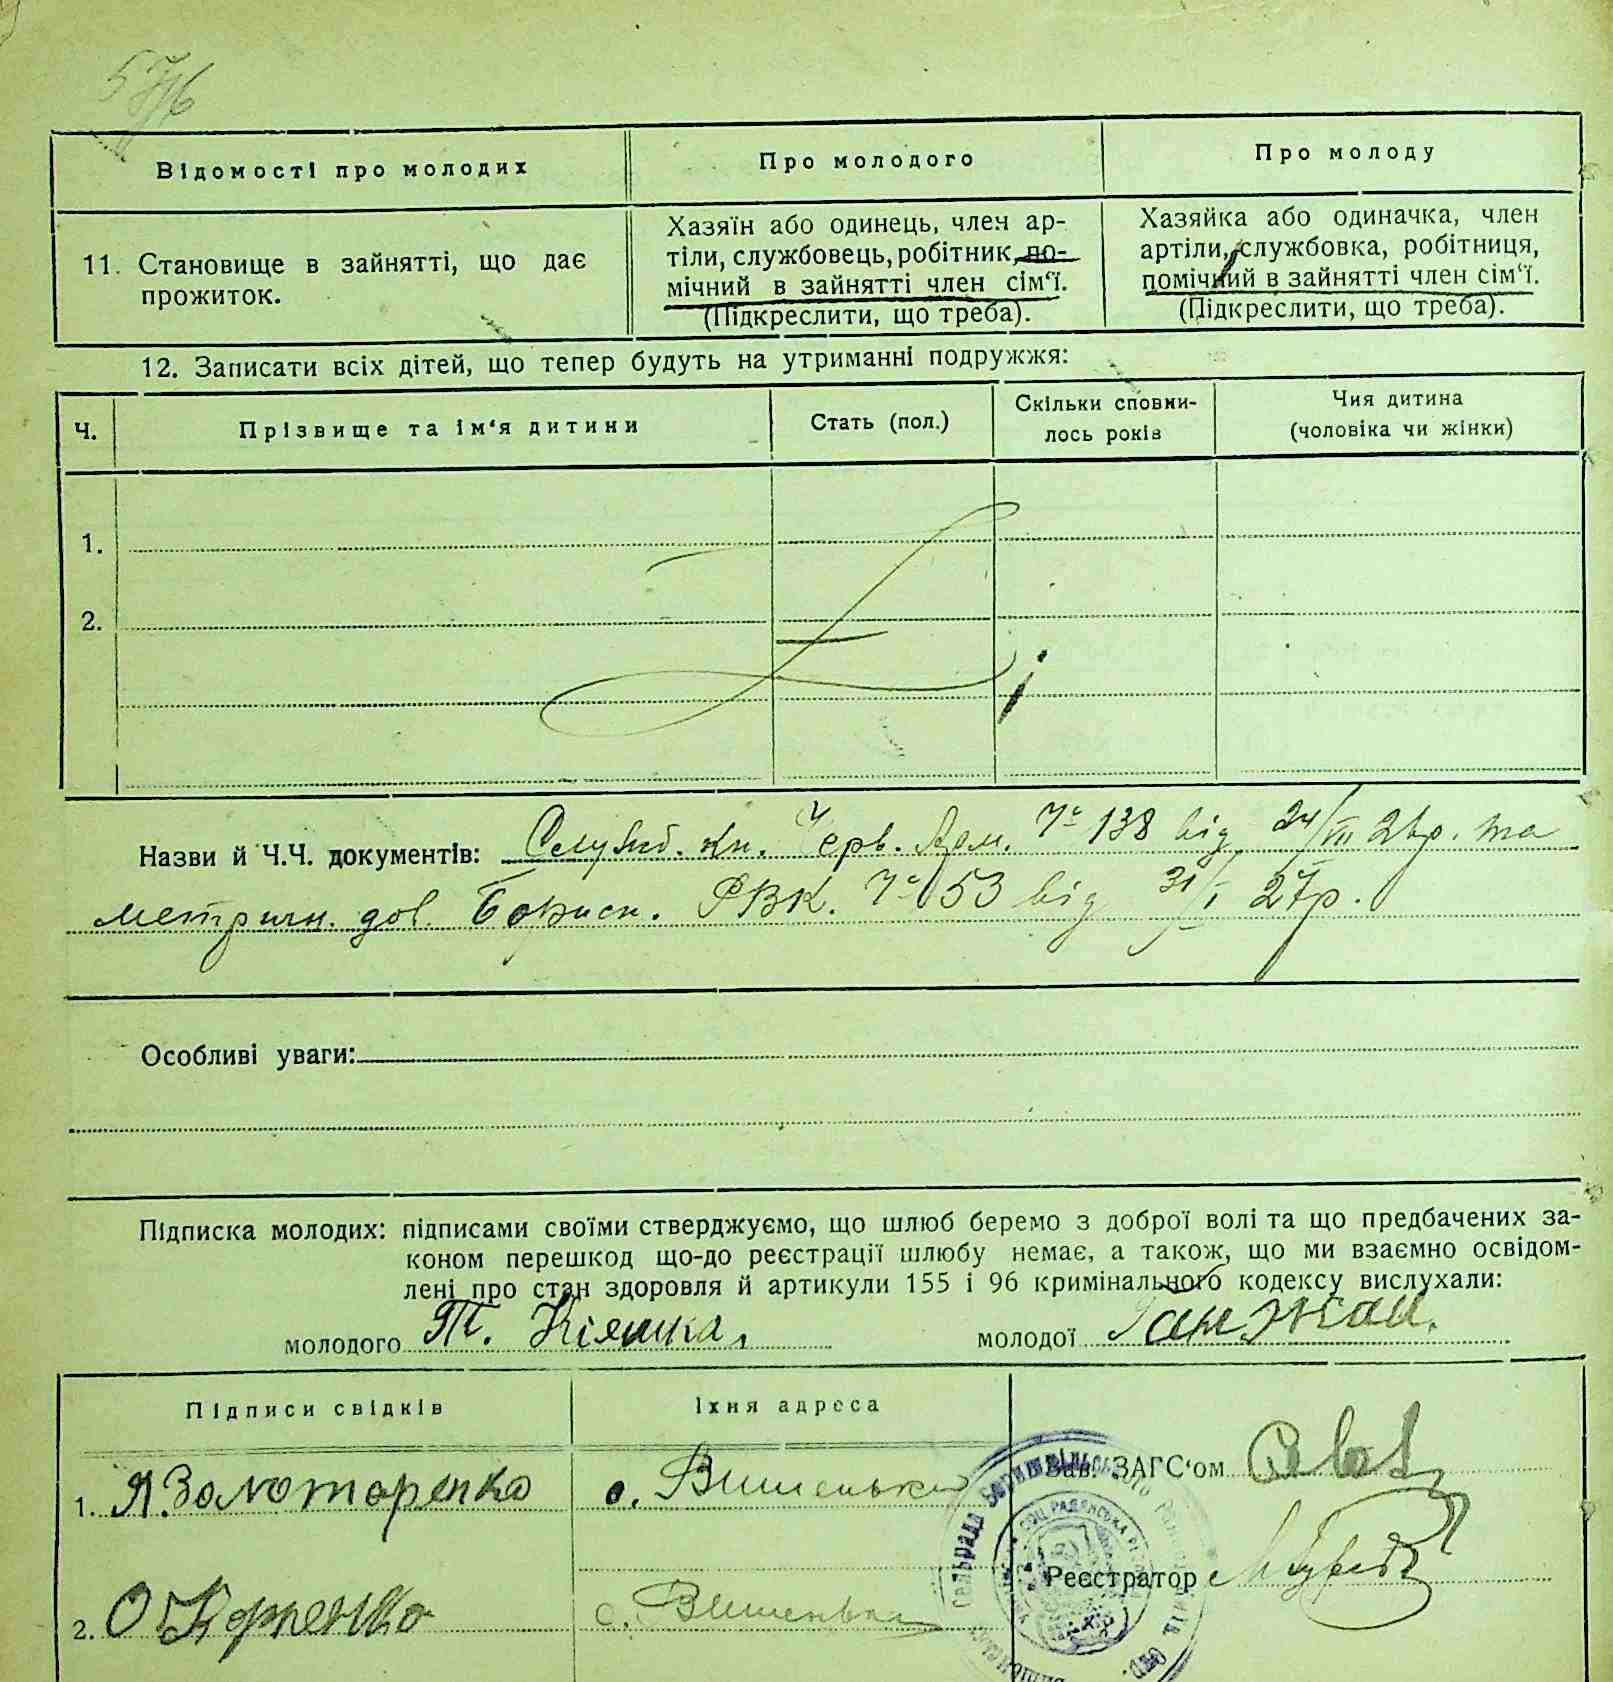 Відомості про молодих
Про молодого
Про молоду
11. Становище в зайнятті, що дає
прожиток.
Хазяїн або одинець, член ар-
тіли, службовець, робітник, по-
мічний в зайнятті член сім‘ї.
(Підкреслити, що треба).
Хазяйка або одиначка, член
артіли, службовка, робітниця,
помічний в зайнятті член сім‘ї.
(Підкреслити, що треба).
12. Записати всіх дітей, що тепер будуть на утриманні подружжя:
Ч.
Прізвище та ім‘я дитини
Стать (пол.)
Скільки сповни-
лось років
Чия дитина
(чоловіка чи жінки)
1.
2.
Назви й Ч.Ч. документів: Служб. кн. Черв. № 138 від 24/III та
метричн. дов. Борисп. РВК. № 53 від 31/I 27р.
Особливі уваги:
Підписка молодих: підписами своїми стверджуємо, що шлюб беремо з доброї волі та що предбачених за-
коном перешкод що-до реєстрації шлюбу немає, а також, що ми взаємно освідом-
лені про стан здоровля й артикули 155 і 96 кримінального кодексу вислухали:
молодого Т. Кіяшка,
молодої Ганжай.
Підписи свідків
Їхня адреса
Зав. ЗАГС‘ом
1. Я. Золоторенко
с. Вишеньки
Реєстратор
2. О Корненко
с. Вишеньки